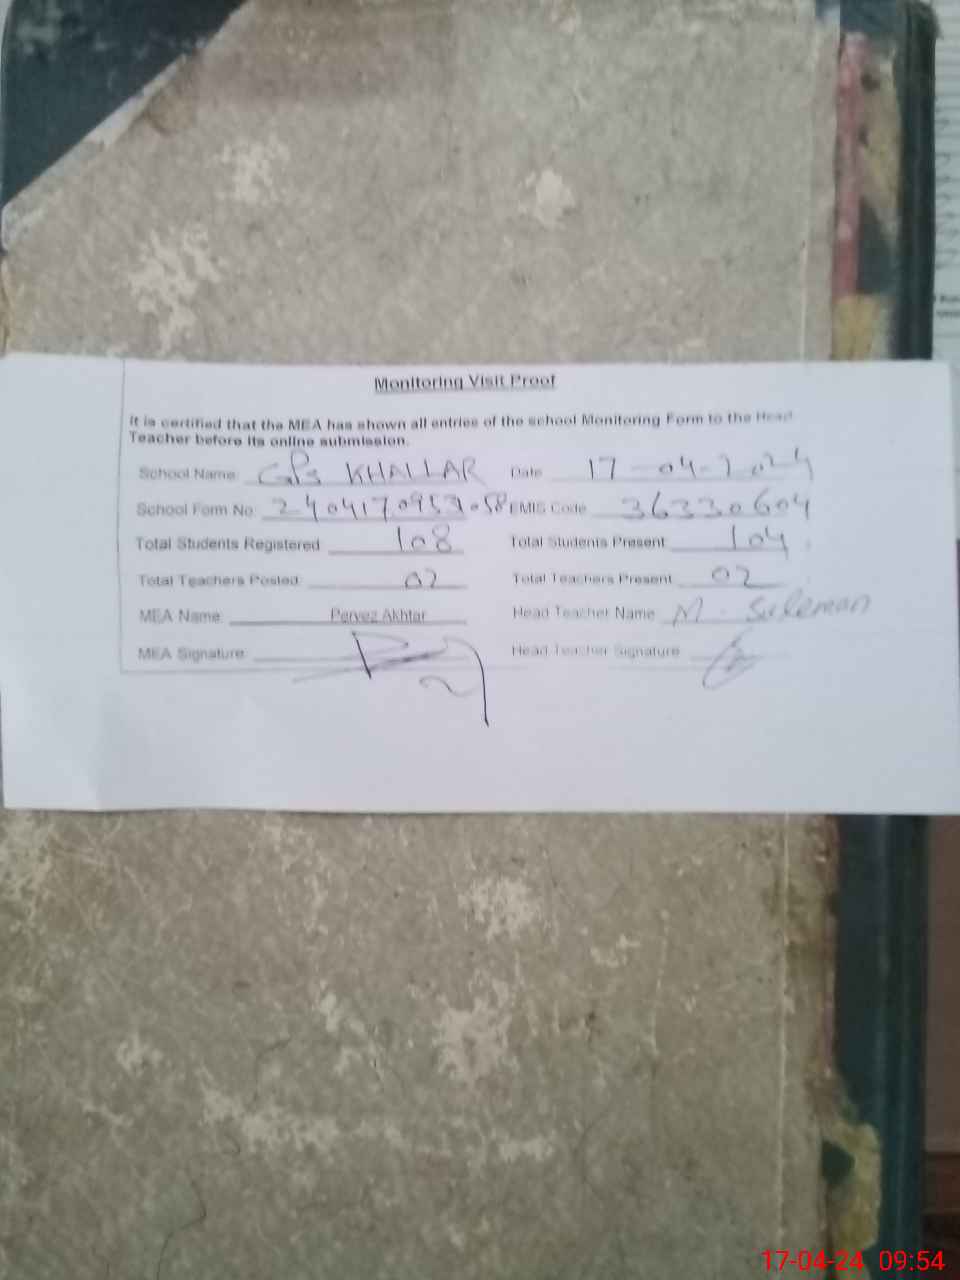 Monitoring Visit Proof
It is certified that the MEA has shown all entries of the school Monitoring Form to the Head
Teacher before its online submission.
School Name: GPS KHALLAR Date 17-04-2024
School Form No: 240417095358 EMIS Code 36330604
Total Students Registered 108 Total Students Present 104
Total Teachers Posted 02 Total Teachers Present 02
MEA Name: Pervez Akhtar Head Teacher Name M. Suleman
MEA Signature: Head Teacher Signature
17-04-24 09:54